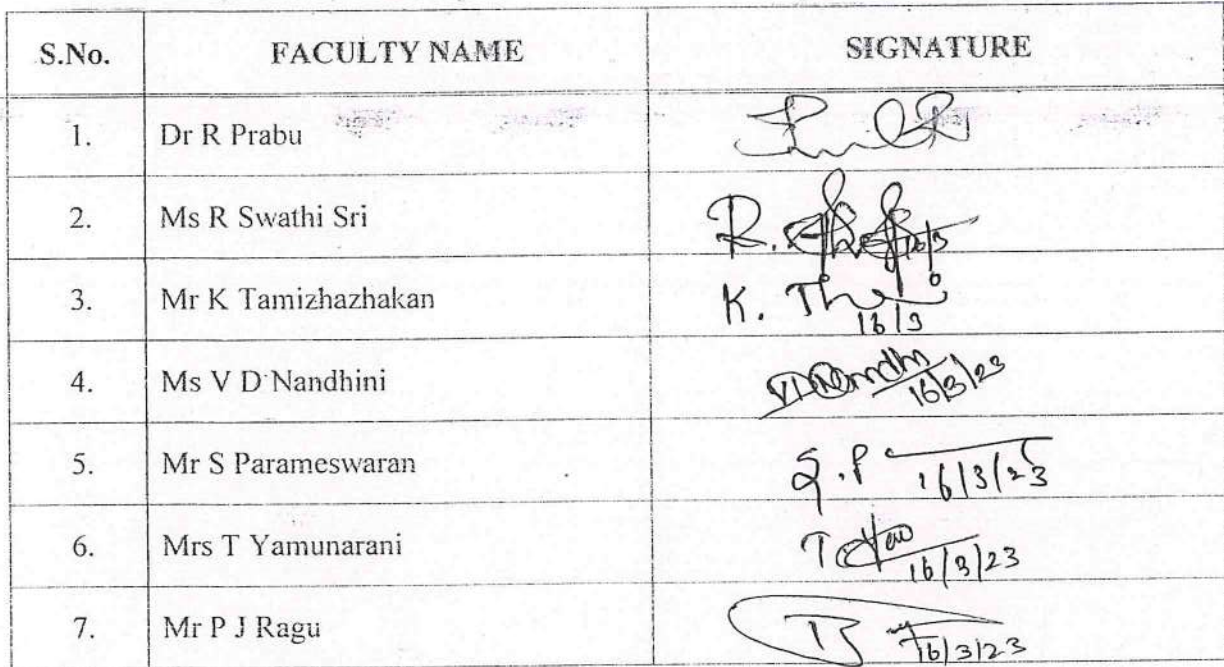 S.No. FACULTY NAME SIGNATURE
1. Dr R Prabu
2. Ms R Swathi Sri R. 16/3
3. Mr K Tamizhazhakan K. 16/3
4. Ms V D Nandhini 16/3/23
5. Mr S Parameswaran S.P 16/3/23
6. Mrs T Yamunarani T 16/3/23
7. Mr P J Ragu 16/3/23